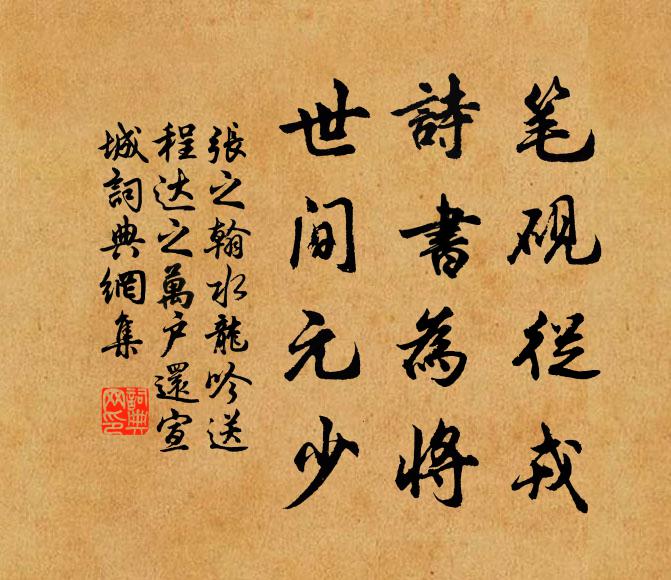 笔砚從戎
詩書為將
世间元少
張之翰水龍吟送
程达之萬户還宣
城詞典網集
詞典
网印